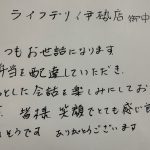 ライフデリ伊勢店 御中
いつもお世話になります
弁当を配達していただき、
とした会話を楽しみにしてお
皆様 笑顔でとても感じ
そうです ありがとうございます